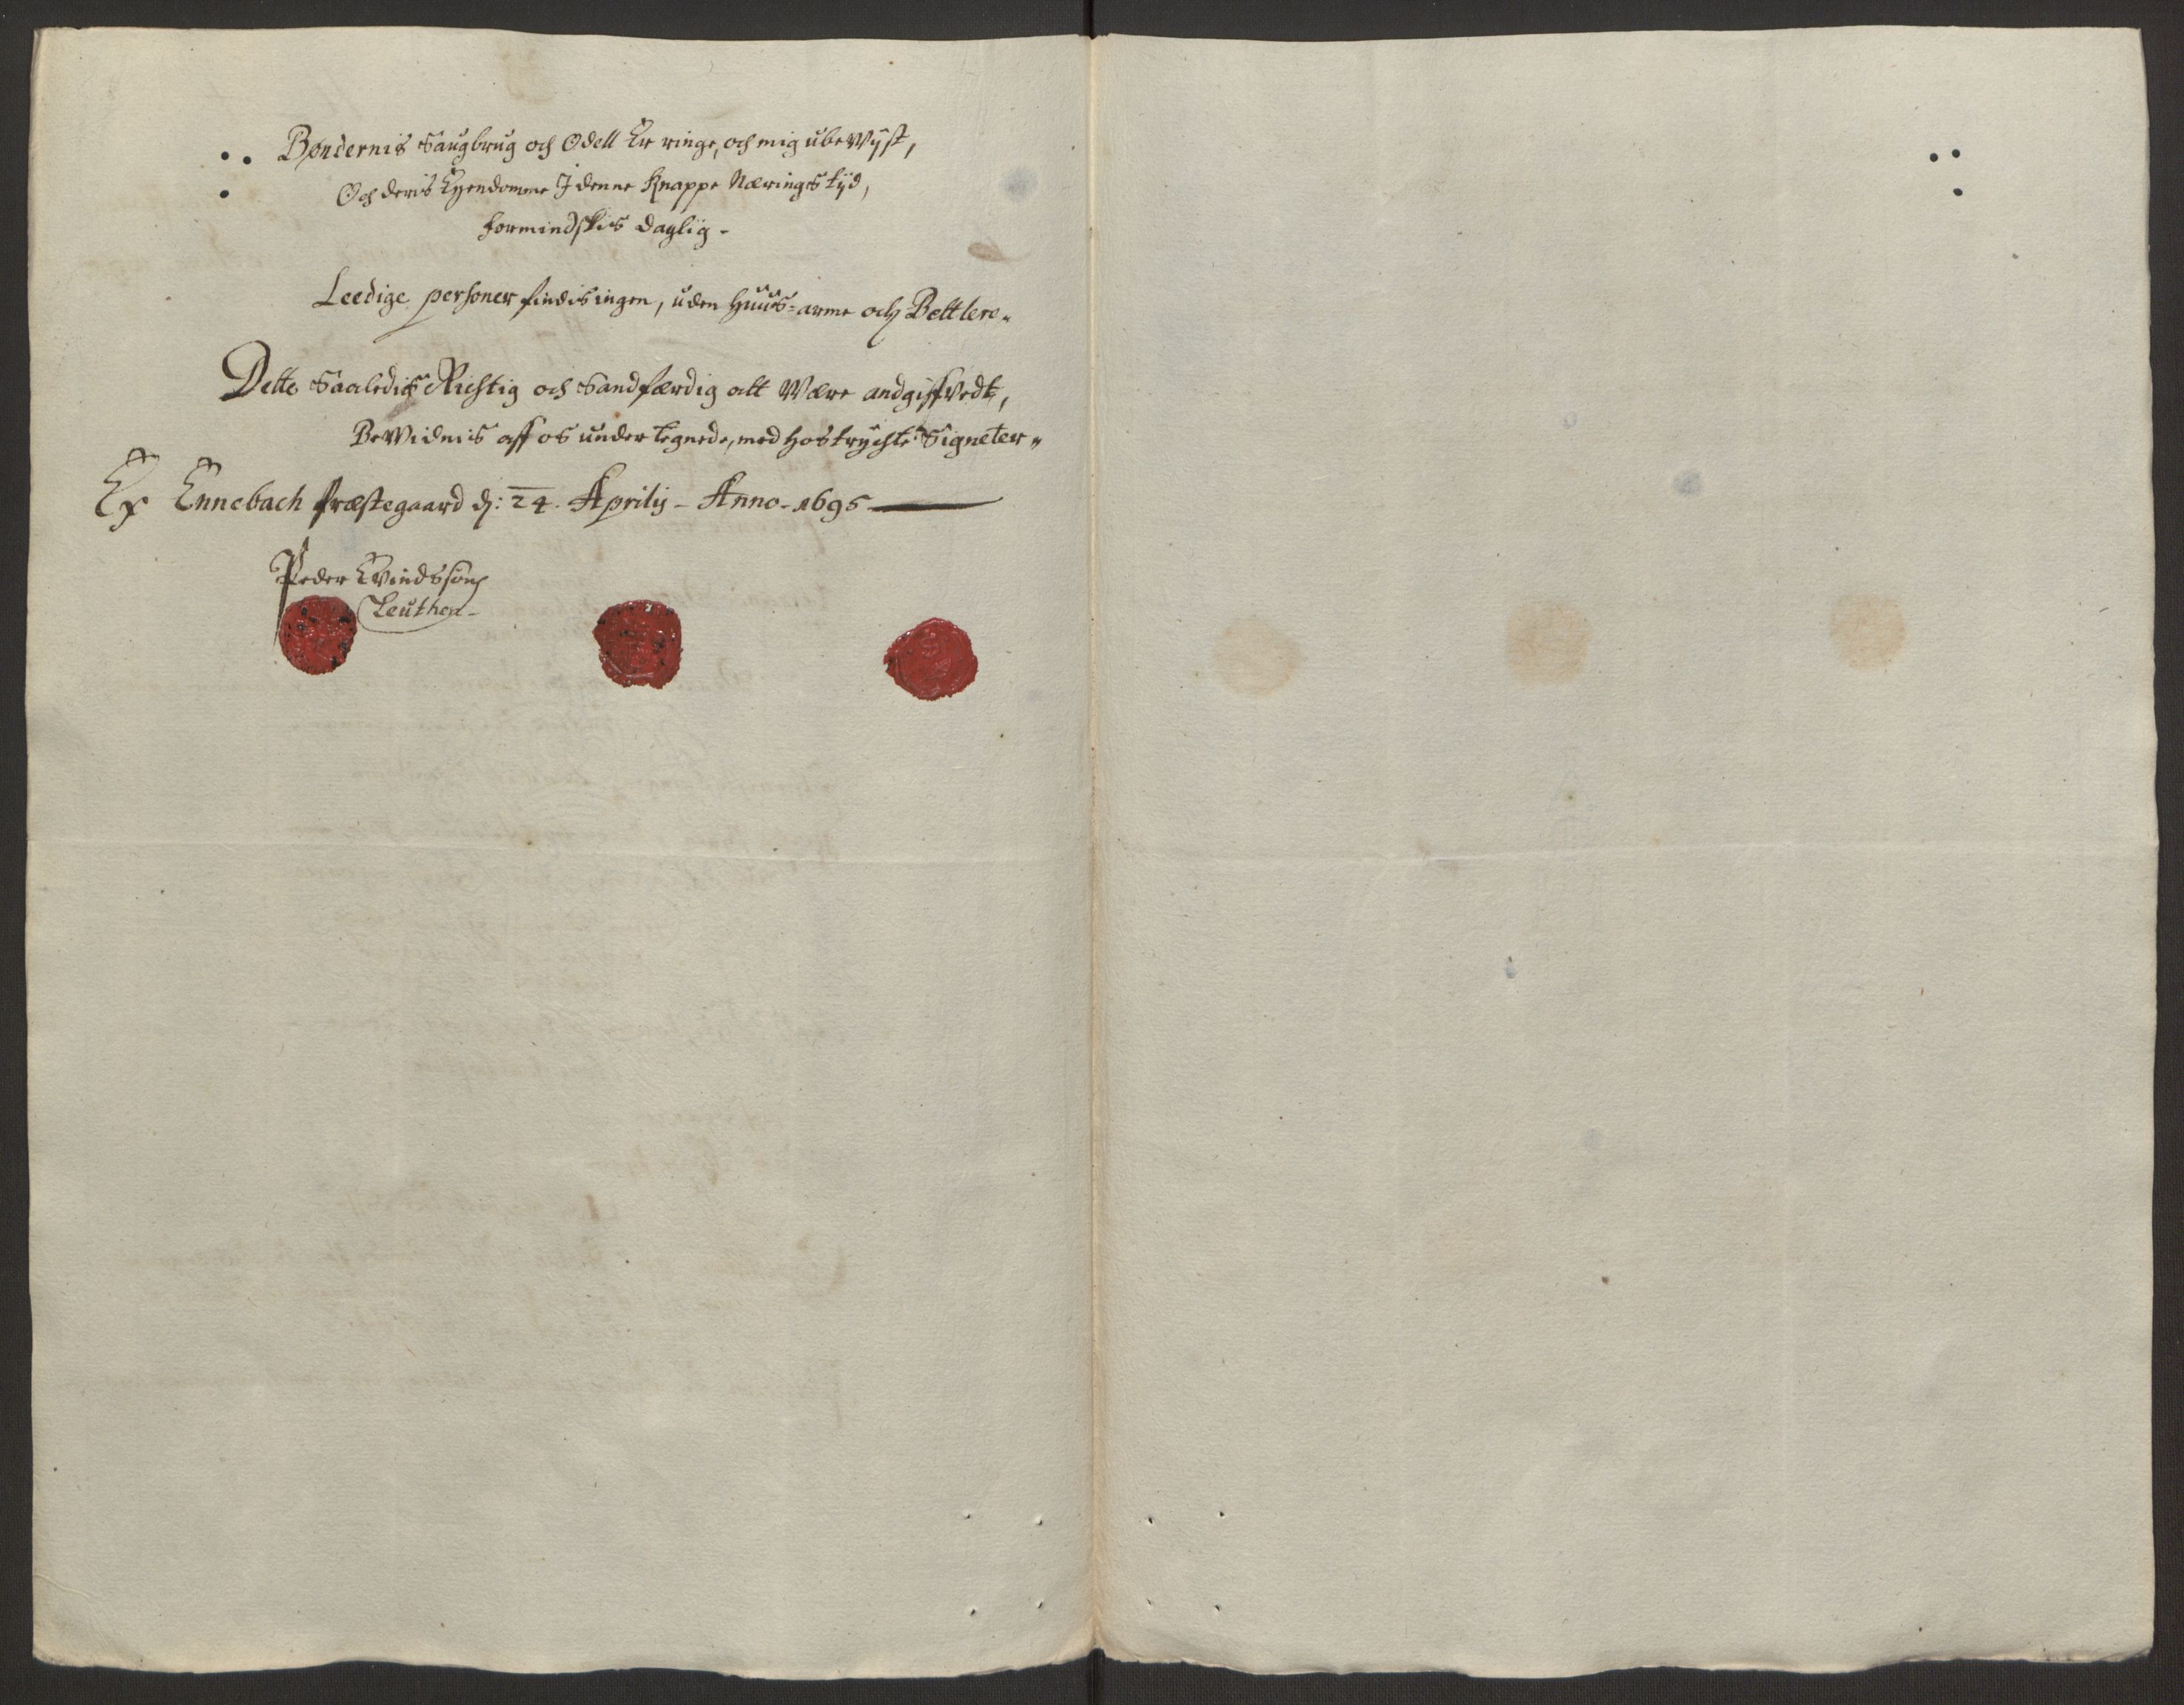 Bøndernis Saugbrug och Odell Er ringe, och mig ubeWÿst,
Och deris Eyendomme J denne Knappe Nærings tÿd,
formindskis daglig -
Leedige personer findis ingen, uden Huus=arme och Bettlere.
Dette Saaledis Richtig och Sandfærdig att Være andgiffvedt,
BeVidnis aff os under tegnede, med hostrychte Signeter
Ex Ennebach Præstegaard d: 24. Aprilis - Anno - 1695
Peder Evindssøn
Leuthen -